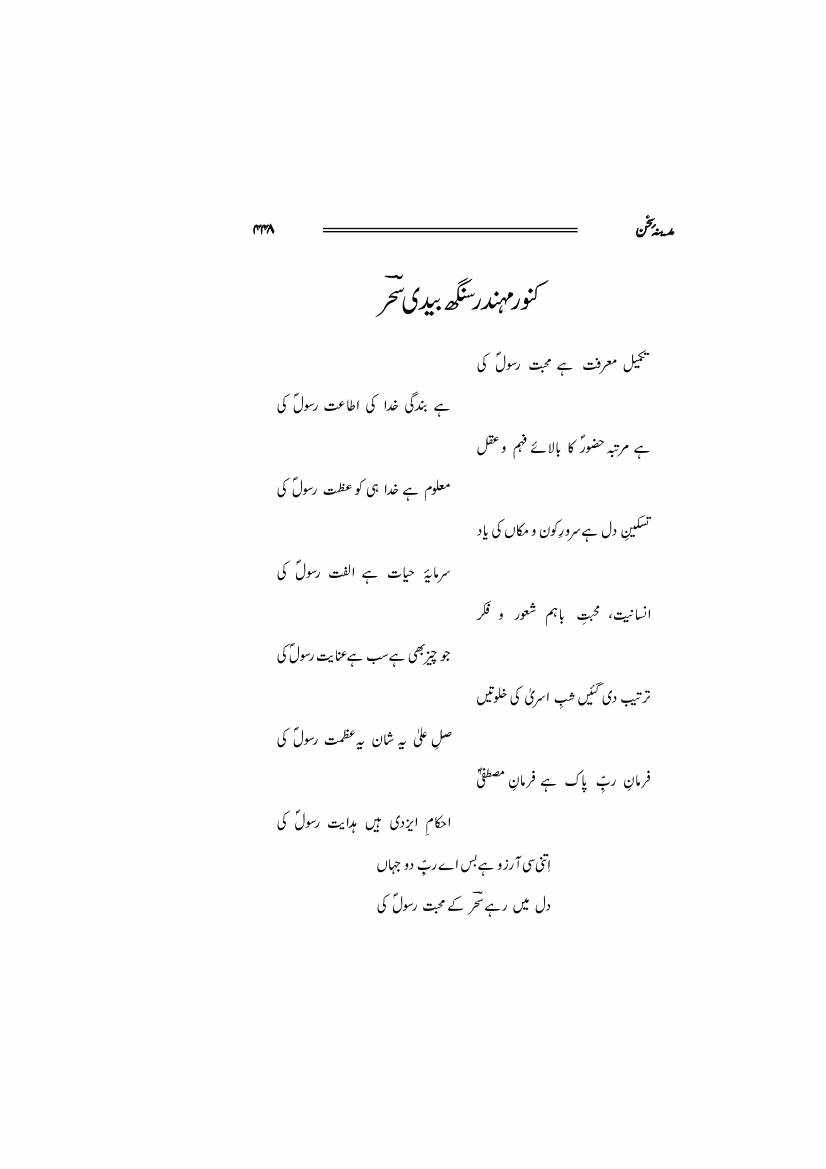 مدینہ سخن ۴۴۸
کنور مہندر سنگھ بیدی سحؔر
تکمیل معرفت ہے محبت رسولؐ کی
ہے بندگی خدا کی اطاعت رسولؐ کی
ہے مرتبہ حضورؐ کا بالائے فہم و عقل
معلوم ہے خدا ہی کو عظت رسولؐ کی
تسکینِ دل ہے سرورِ کون و مکاں کی یاد
سرمایۂ حیات ہے الفت رسولؐ کی
انسانیت، محبتِ باہم شعور و فکر
جو چیز بھی ہے سب ہے عنایت رسولؐ کی
ترتیب دی گئیں شبِ اسریٰ کی خلوتیں
صلِ علیٰ یہ شان یہ عظمت رسولؐ کی
فرمانِ ربِّ پاک ہے فرمانِ مصطفیٰؐ
احکامِ ایزدی ہیں ہدایت رسولؐ کی
اِتنی سی آرزو ہے بس اے ربِّ دو جہاں
دل میں رہے سحؔر کے محبت رسولؐ کی